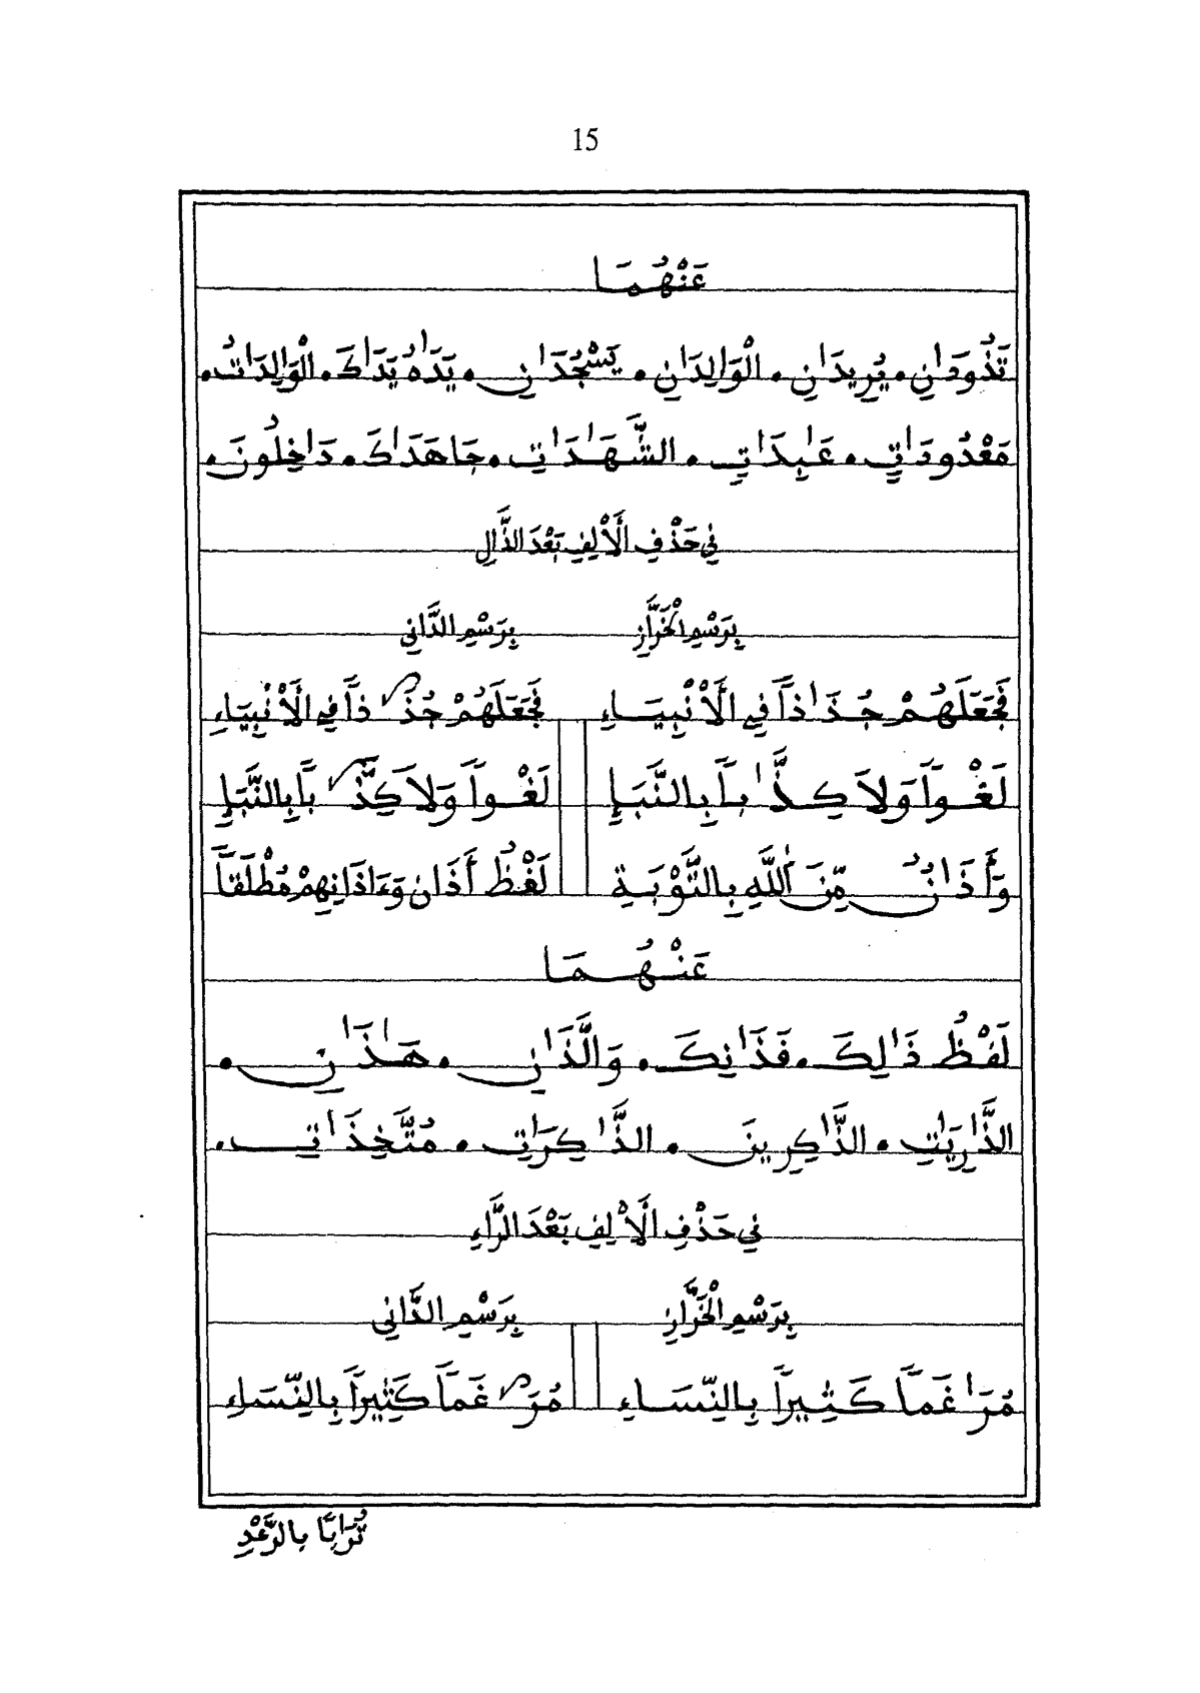 15
عَنْهُمَا
تَذُودَٰنِ • يُرِيدَٰنِ • الْوَٰلِدَٰنِ • يَسْجُدَٰنِ • يَدَٰهُ يَدَٰكَ • الْوَٰلِدَٰتُ •
مَعْدُودَٰتٍ • عَٰبِدَٰتٍ • الشَّهَٰدَٰتِ • جَاهَدَٰكَ • دَٰخِلُونَ •
فِي حَذْفِ الْأَلِفِ بَعْدَ الذَّالِ
بِرَسْمِ الْخَرَّازِ بِرَسْمِ الدَّانِي
فَجَعَلَهُمْ جُذَٰذاً فِي الْأَنْبِيَاءِ فَجَعَلَهُمْ جُذَ ذاً فِي الْأَنْبِيَاءِ
لَغْواً وَلَا كِذَّٰباً بِالنَّبَإِ لَغْواً وَلَا كِذَّ باً بِالنَّبَإِ
وَأَذَٰنٌ مِّنَ اَللَّهِ بِالتَّوْبَةِ لَفْظُ أَذَان وَءَاذَانِهِمْ مُطْلَقاً
عَنْهُمَا
لَفْظُ ذَٰلِكَ • فَذَٰنِكَ • وَالَّذَٰنِ • هَٰذَٰنِ •
الذَّٰرِيَٰتِ • الذَّٰكِرِينَ • الذَّٰكِرَٰتِ • مُتَّخِذَٰتِ •
فِي حَذْفِ الْأَلِفِ بَعْدَ الرَّاءِ
بِرَسْمِ الْخَرَّازِ بِرَسْمِ الدَّانِي
مُرَٰغَماً كَثِيراً بِالنِّسَاءِ مُرَ غَماً كَثِيراً بِالنِّسَاءِ
تُرَٰباً بِالرَّعْدِ